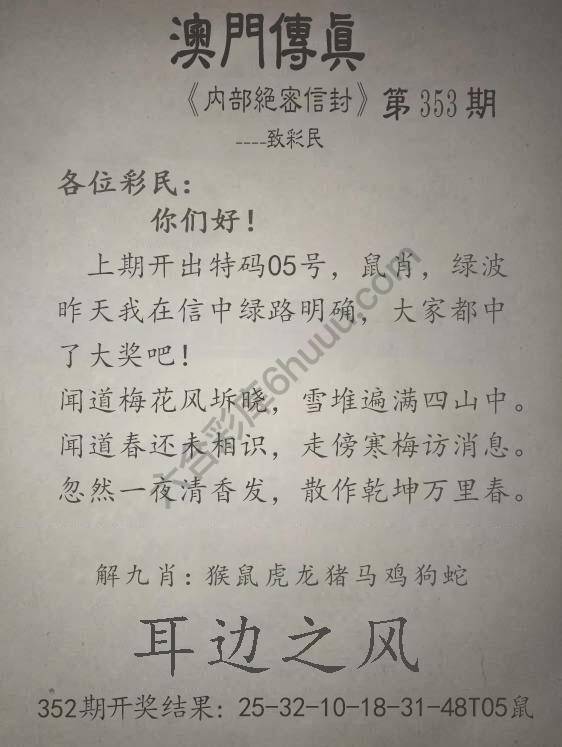 澳門傳眞
《内部絕密信封》第353期
----致彩民
各位彩民：
你们好！
上期开出特码05号，鼠肖，绿波
昨天我在信中绿路明确，大家都中
了大奖吧！
闻道梅花风坼晓，雪堆遍满四山中。
闻道春还未相识，走傍寒梅访消息。
忽然一夜清香发，散作乾坤万里春。
解九肖：猴鼠虎龙猪马鸡狗蛇
耳边之风
352期开奖结果：25-32-10-18-31-48T05鼠
六合彩库6huuu.com